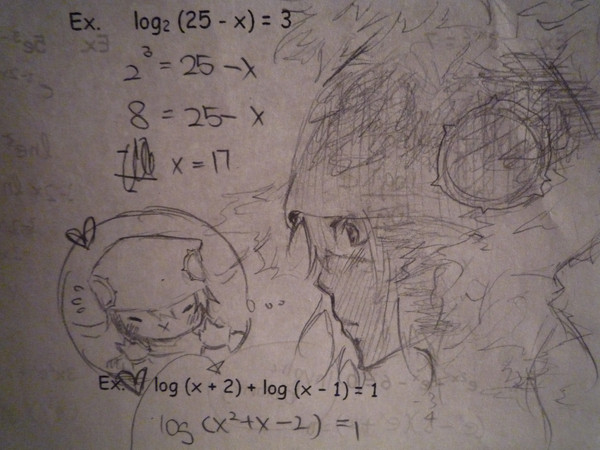 Ex. log₂ (25 - x) = 3
2³ = 25 - x
8 = 25 - x
x = 17
Ex. log (x + 2) + log (x - 1) = 1
log (x² + x - 2) = 1